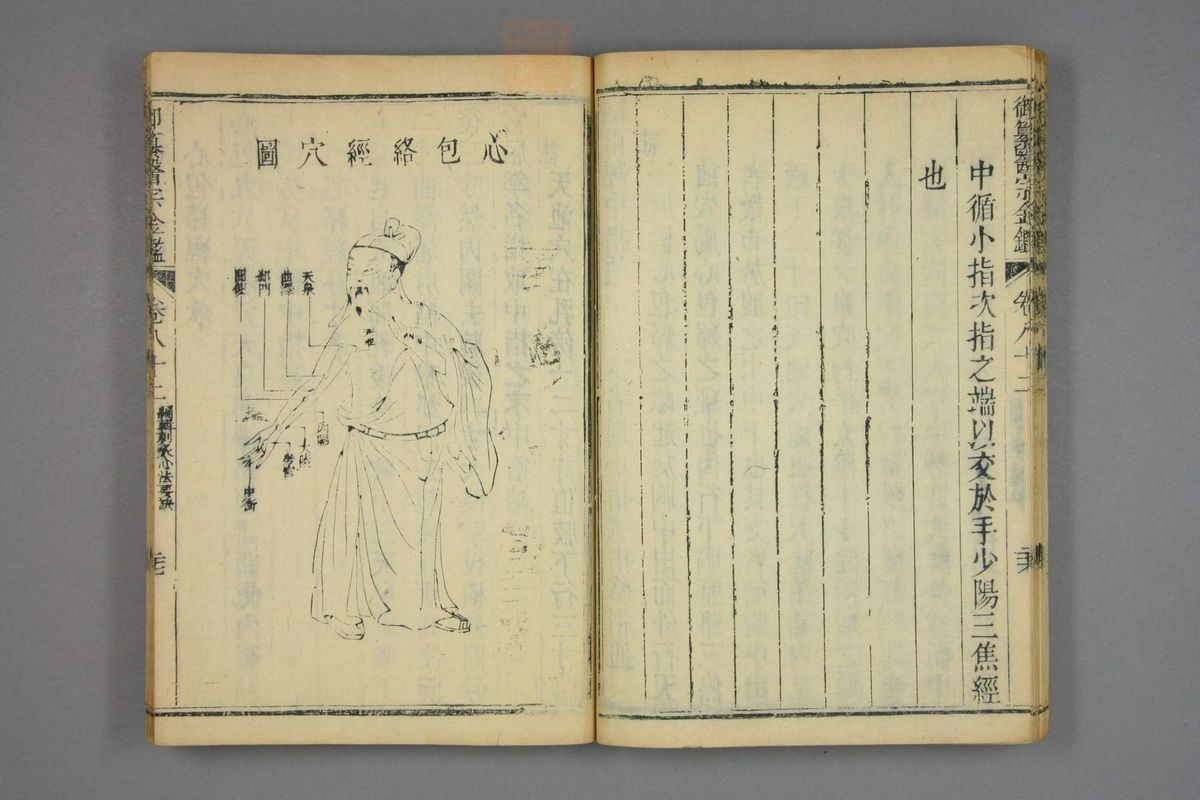 中循小指次指之端以交於手少陽三焦經
也
御纂醫宗金鑑
卷八十二
心包絡經穴圖
天泉
曲澤
郄門
間使
天池
內關
大陵
勞宮
中衝
御纂醫宗金鑑
卷八十二
刺灸心法要訣